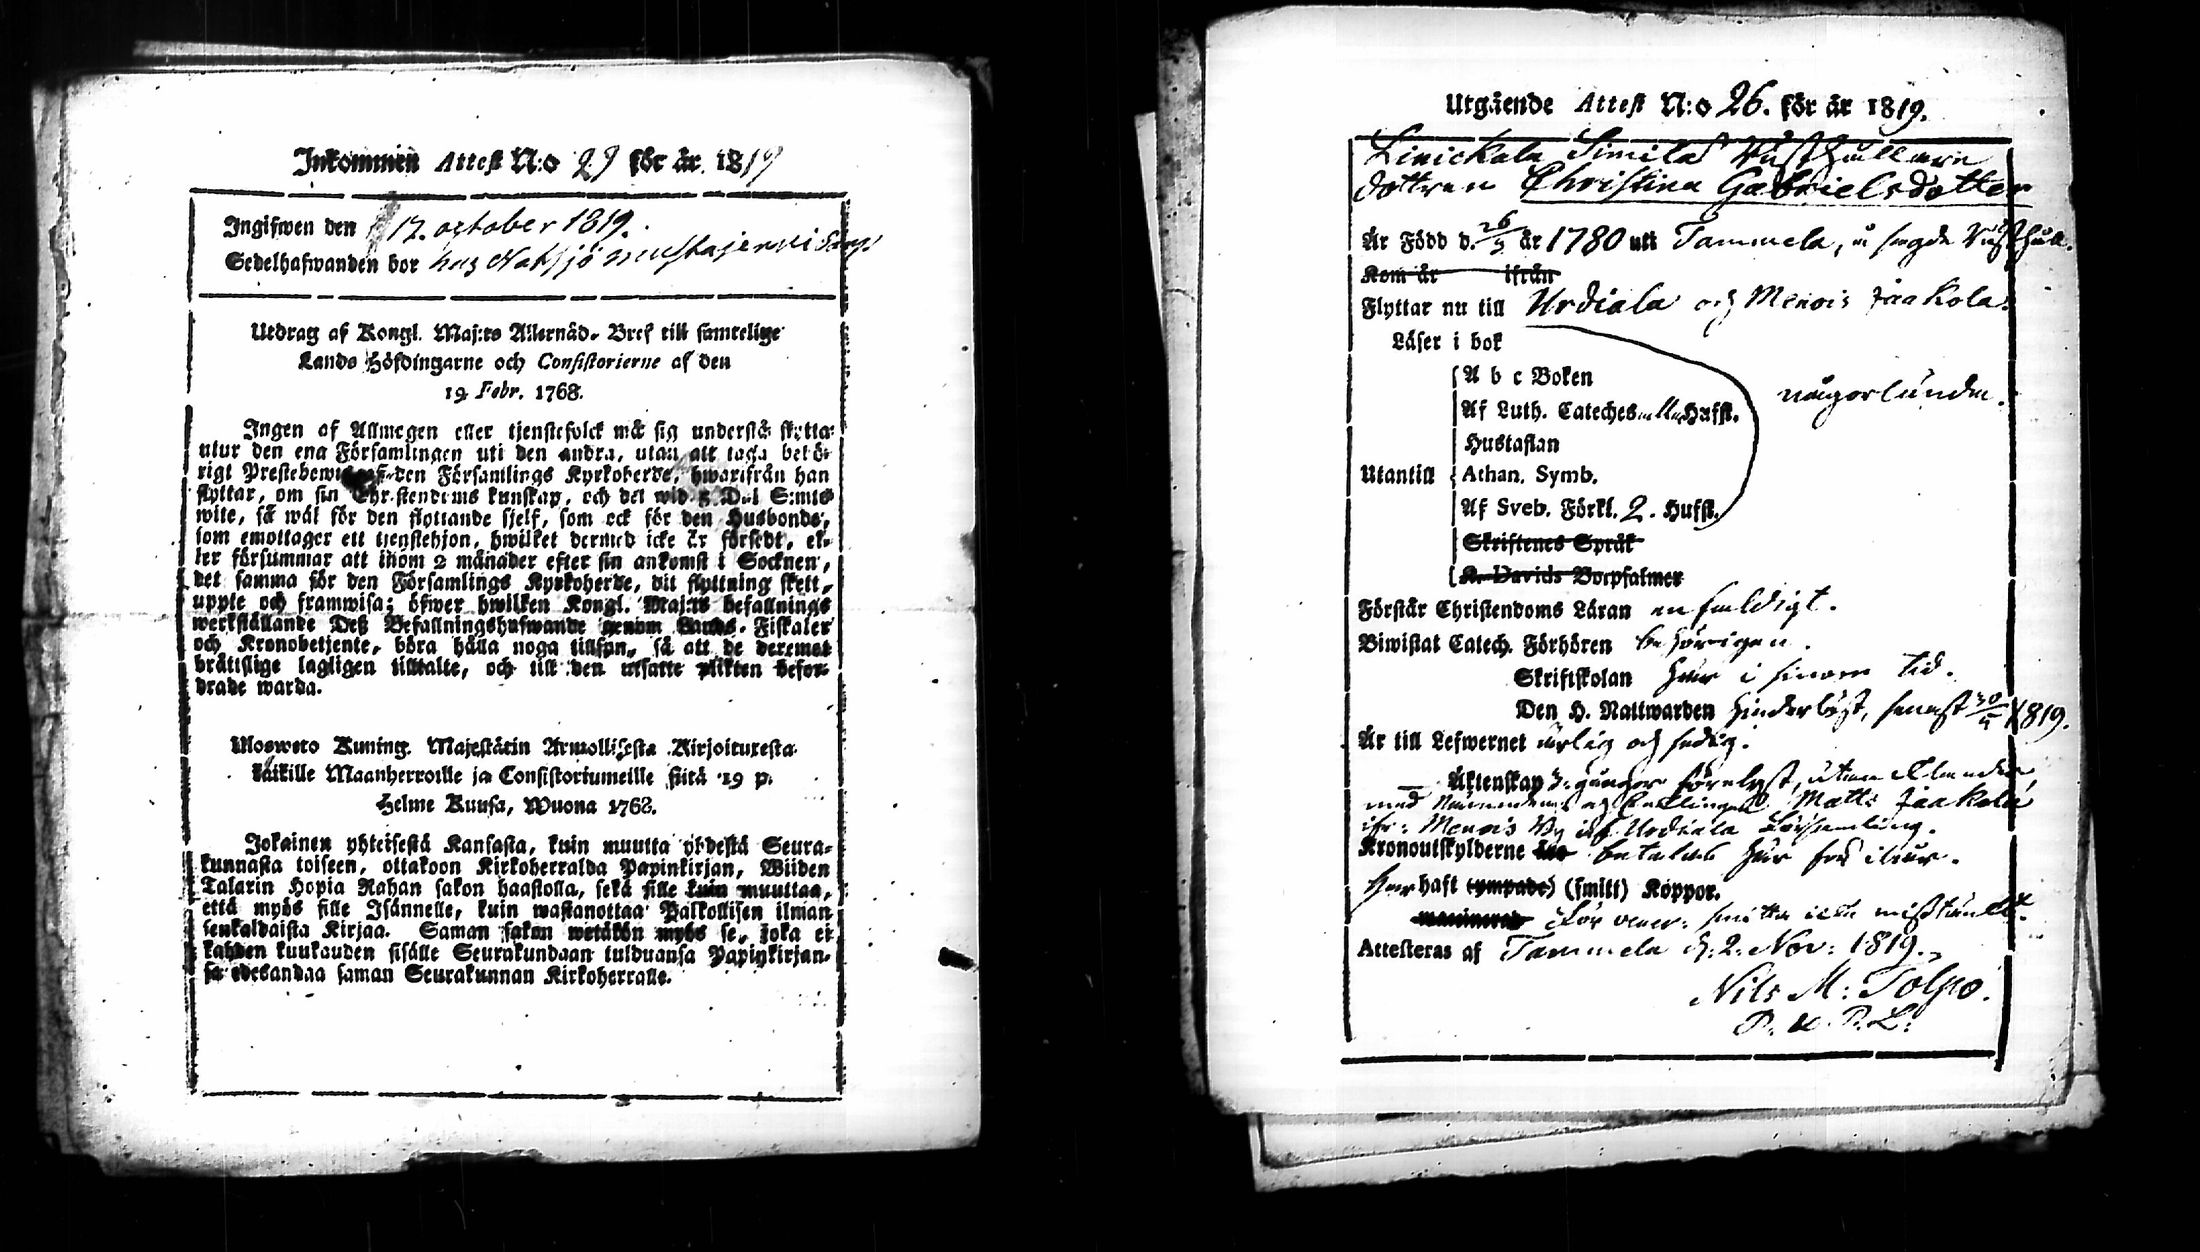 Inkommen Attest N:o 29 för år 1819
Ingifwen den 17. october 1819.
Sedelhafwanden bor hos
Utdrag af Kongl. Maj:ts Allernåd. Bref till samtelige
Lands Höfdingarne och Consistorierne af den
19 Febr. 1768.
Ingen af Allmogen eller tjenstefolck må sig understå flytta
utur den ena Församlingen uti den andra, utan att taga behö-
rigt Prestebewis af den Församlings Kyrkoherde, hwarifrån han
flyttar, om sin Christendoms kunskap, och det wid 5 Dal. S:mts
wite, så wäl för den flyttande sjelf, som ock för den Husbonde,
som emottager ett tjenstehjon, hwilket dermed icke är försedt, el-
ler försummar att inom 2 månader efter sin ankomst i Socknen,
det samma för den Församlings Kyrkoherde, dit flyttning skett,
uppte och framwisa; öfwer hwilken Kongl. Maj:ts befallnings
werkställande Deß Befallningshafwande genom Lands-Fiskaler
och Kronobetjente, böra hålla noga tillsyn, så att de deremot
bråttslige lagligen tilltalte, och till den utsatte plikten befor-
drade warda.
Ulosweto Kuning. Majestätin Armollisesta Kirjoituxesta
kaikille Maanherroille ja Consistoriumeille siitä 19 p.
Helme Kuusa, Wuona 1768.
Jokainen yhteisestä Kansasta, kuin muutta yhdestä Seura-
kunnasta toiseen, ottakoon Kirkoherralda Papinkirjan, Wiiden
Talarin Hopia Rahan sakon haastolla, sekä sille kuin muuttaa,
että myös sille Isännelle, kuin wastanottaa Palkollisen ilman
senkaldaista Kirjaa. Saman sakon wetäkön myös se, joka ei
kahden kuukauden sisälle Seurakundaan tulduansa Papinkirjan-
sa edesandaa saman Seurakunnan Kirkoherralle.
Utgående Attest N:o 26. för år 1819.
Linickala Simila Rusthållare
dottren Christina Gabrielsdotter
Är Född d. 26/3 år 1780 uti Tammela, å sagde Rusthåll.
Kom år ifrån
Flyttar nu till Urdiala och Menois Jaakola.
Läser i bok
A b c Boken
Af Luth. Cateches alla Hufst. någorlunda.
Hustaflan
Utantill Athan. Symb.
Af Sveb. Förkl. 2. Hufst.
Skriftenes Språk
K. Davids Botpsalmer
Förstår Christendoms Läran enfaldigt.
Biwistat Catech. Förhören behörigen.
Skriftskolan här i sinom tid.
Den H. Nattwarden hinderlöst, senast 1819.
Är till Lefwernet ärlig och sedig.
Äktenskap 3. gånger förelyst, utan klander,
med Nämndemans Matts Jaakola
ifr: Menois By af Urdiala Församling.
Kronoutskylderne betalas här för i år.
Har haft (ympade) (smitt) Koppor.
För vener: smitta icke misstänkt.
Attesteras af Tammela d. 2. Nov: 1819.
Nils M: Tolpo.